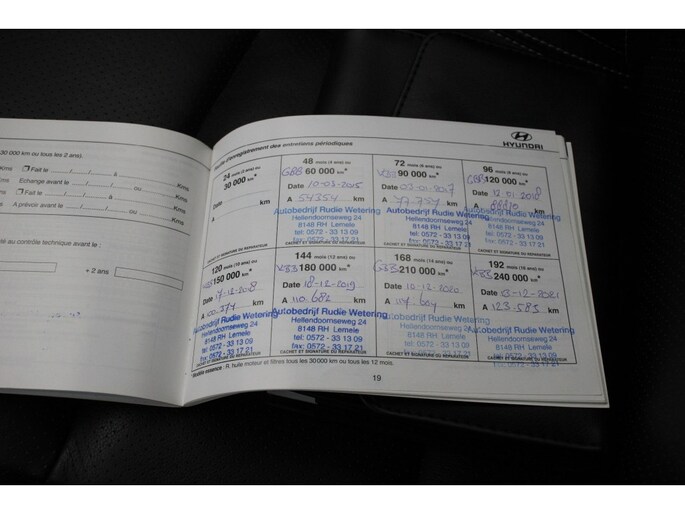 30 000 km ou tous les 2 ans).
Kms ❐ Fait le ....../....../...... à ......Kms
Echange avant le ....../....../...... Kms
❐ Fait le ....../....../...... à ......Kms
A prévoir avant le ....../....../...... Kms
au contrôle technique avant le :
+ 2 ans :
HYUNDAI
d'enregistrement des entretiens périodiques
24 mois (2 ans) ou
30 000 km*
Date
A km
CACHET ET SIGNATURE DU REPARATEUR
48 mois (4 ans) ou
GBB 60 000 km*
Date 10-03-2015
A 54354 km
Autobedrijf Rudie Wetering
Hellendoornseweg 24
8148 RH Lemele
tel: 0572 - 33 13 09
fax: 0572 - 33 17 21
CACHET ET SIGNATURE DU REPARATEUR
72 mois (6 ans) ou
90 000 km*
Date 03-01-2017
A 77.757 km
Autobedrijf Rudie Wetering
Hellendoornseweg 24
8148 RH Lemele
tel: 0572 - 33 13 09
fax: 0572 - 33 17 21
96 mois (8 ans) ou
GBB 120 000 km*
Date 12-01-2018
A km
Autobedrijf Rudie Wetering
Hellendoornseweg 24
8148 RH Lemele
tel: 0572 - 33 13 09
fax: 0572 - 33 17 21
120 mois (10 ans) ou
150 000 km*
Date 17-12-2018
A km
Autobedrijf Rudie Wetering
Hellendoornseweg 24
8148 RH Lemele
tel: 0572 - 33 13 09
fax: 0572 - 33 17 21
CACHET ET SIGNATURE DU REPARATEUR
144 mois (12 ans) ou
180 000 km*
Date 18-12-2019
A 110.682 km
Autobedrijf Rudie Wetering
Hellendoornseweg 24
8148 RH Lemele
tel: 0572 - 33 13 09
fax: 0572 - 33 17 21
CACHET ET SIGNATURE DU REPARATEUR
168 mois (14 ans) ou
210 000 km*
Date 10-12-2020
A 117.604 km
Autobedrijf Rudie Wetering
Hellendoornseweg 24
8148 RH Lemele
tel: 0572 - 33 13 09
fax: 0572 - 33 17 21
CACHET ET SIGNATURE DU REPARATEUR
192 mois (16 ans) ou
240 000 km*
Date 13-12-2021
A 123.585 km
Autobedrijf Rudie Wetering
Hellendoornseweg 24
8148 RH Lemele
tel: 0572 - 33 13 09
fax: 0572 - 33 17 21
* Modèle essence : R. huile moteur et filtres tous les 30 000 km ou tous les 12 mois.
19